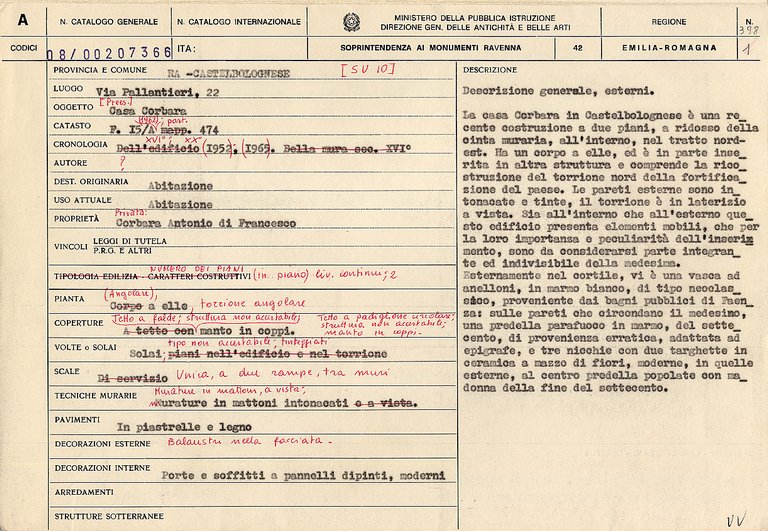 A
N. CATALOGO GENERALE
N. CATALOGO INTERNAZIONALE
MINISTERO DELLA PUBBLICA ISTRUZIONE
DIREZIONE GEN. DELLE ANTICHITÀ E BELLE ARTI
REGIONE
N.
398
CODICI
08/00207366
ITA:
SOPRINTENDENZA AI MONUMENTI RAVENNA
42
EMILIA-ROMAGNA
1
PROVINCIA E COMUNE RA -CASTELBOLOGNESE [SU 10]
LUOGO Via Pallantieri, 22
[Prees.]
OGGETTO Casa Corbara
(1962); part.
CATASTO F. I5/A mapp. 474
XVI°; XX°
CRONOLOGIA Dell'edificio (I952; (I965. Della mura sec. XVI°
AUTORE ?
DEST. ORIGINARIA Abitazione
USO ATTUALE Abitazione
Privata:
PROPRIETÀ Corbara Antonio di Francesco
VINCOLI LEGGI DI TUTELA
P.R.G. E ALTRI
NUMERO DEI PIANI
TIPOLOGIA EDILIZIA - CARATTERI COSTRUTTIVI (in piano) liv. continui; 2
(Angolare),
PIANTA Corpo a elle, torrione angolare
Tetto a falde; struttura non accertabile; Tetto a padiglione
struttura non accertabile;
COPERTURE A tetto con manto in coppi. manto in coppi.
tipo non accertabile; tinteggiati
VOLTE o SOLAI Solai; piani nell'edificio e nel torrione
SCALE Di servizio Unica, a due rampe, tra muri
Murature in mattoni, a vista;
TECNICHE MURARIE Murature in mattoni intonacati o a vista.
PAVIMENTI In piastrelle e legno
DECORAZIONI ESTERNE Balaustri nella facciata.
DECORAZIONI INTERNE Porte e soffitti a pannelli dipinti, moderni
ARREDAMENTI
STRUTTURE SOTTERRANEE
DESCRIZIONE
Descrizione generale, esterni.
La casa Corbara in Castelbolognese è una re_
cente costruzione a due piani, a ridosso della
cinta muraria, all'interno, nel tratto nord-
est. Ha un corpo a elle, ed è in parte inse_
rita in altra struttura e comprende la rico_
struzione del torrione nord della fortifica_
zione del paese. Le pareti esterne sono in_
tonacate e tinte, il torrione è in laterizio
a vista. Sia all'interno che all'esterno que_
sto edificio presenta elementi mobili, che per
la loro importanza e peculiarità dell'inseri
mento, sono da considerarsi parte integran_
te ed indivisibile della medesima.
Esternamente nel cortile, vi è una vasca ad
anelloni, in marmo bianco, di tipo neoclas_
sico, proveniente dai bagni pubblici di Faen_
za: sulle pareti che circondano il medesimo,
una predella parafuoco in marmo, del sette_
cento, di provenienza erratica, adattata ad
epigrafe, e tre nicchie con due targhette in
ceramica a mazzo di fiori, moderne, in quelle
esterne, al centro predella popolate con ma_
donna della fine del settecento.
VV